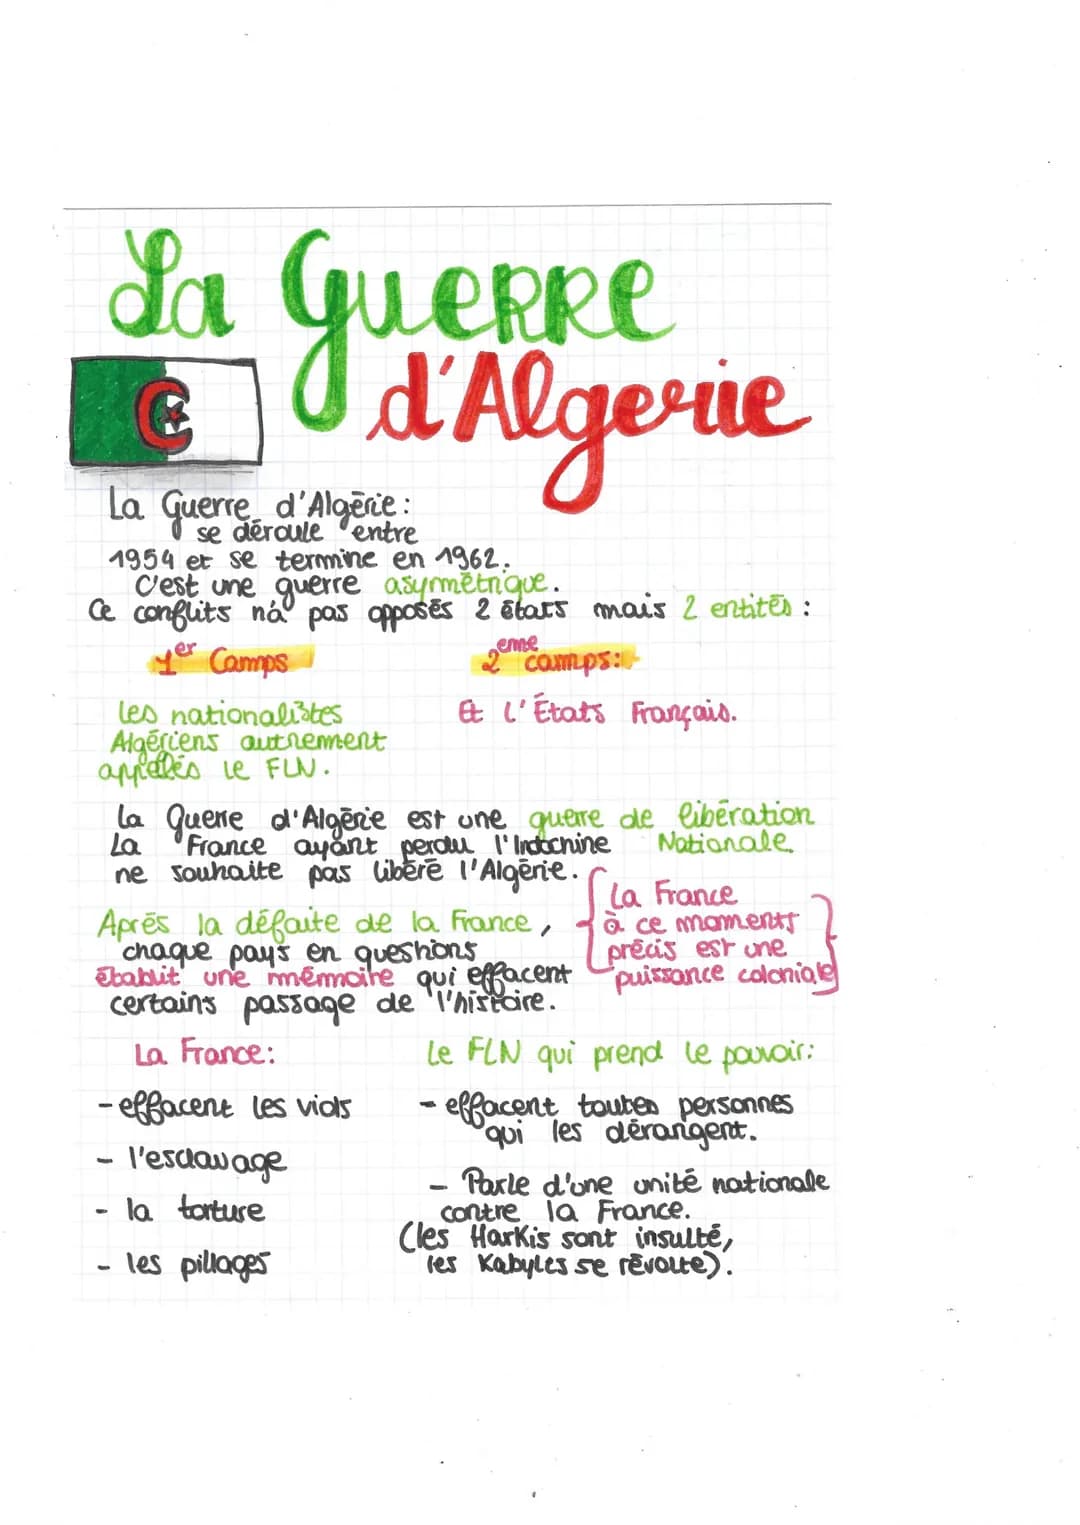 La Guerre
d'Algerie
La Guerre d'Algérie :
se déroule entre
1954 et se termine en 1962.
C'est une guerre asymétrique.
Ce conflits n'a pas opposés 2 états mais 2 entités :
1er Camps
2eme camps:
les nationalistes
Algériens autrement
appelés le FLN.
Et l'États Français.
La Guerre d'Algérie est une guerre de libération
Nationale.
La France ayant perdu l'Indochine
ne souhaite pas libéré l'Algérie.
La France
à ce moments
précis est une
puissance coloniale
Après la défaite de la France,
chaque pays en questions
établit une mémoire qui effacent
certains passage de l'histoire.
La France:
- effacent les viols
- l'esclavage
- la torture
- les pillages
Le FLN qui prend le pouvoir:
- effacent toutes personnes
qui les dérangent.
- Parle d'une unité nationale
contre la France.
(les Harkis sont insulté,
les Kabyles se révolte).